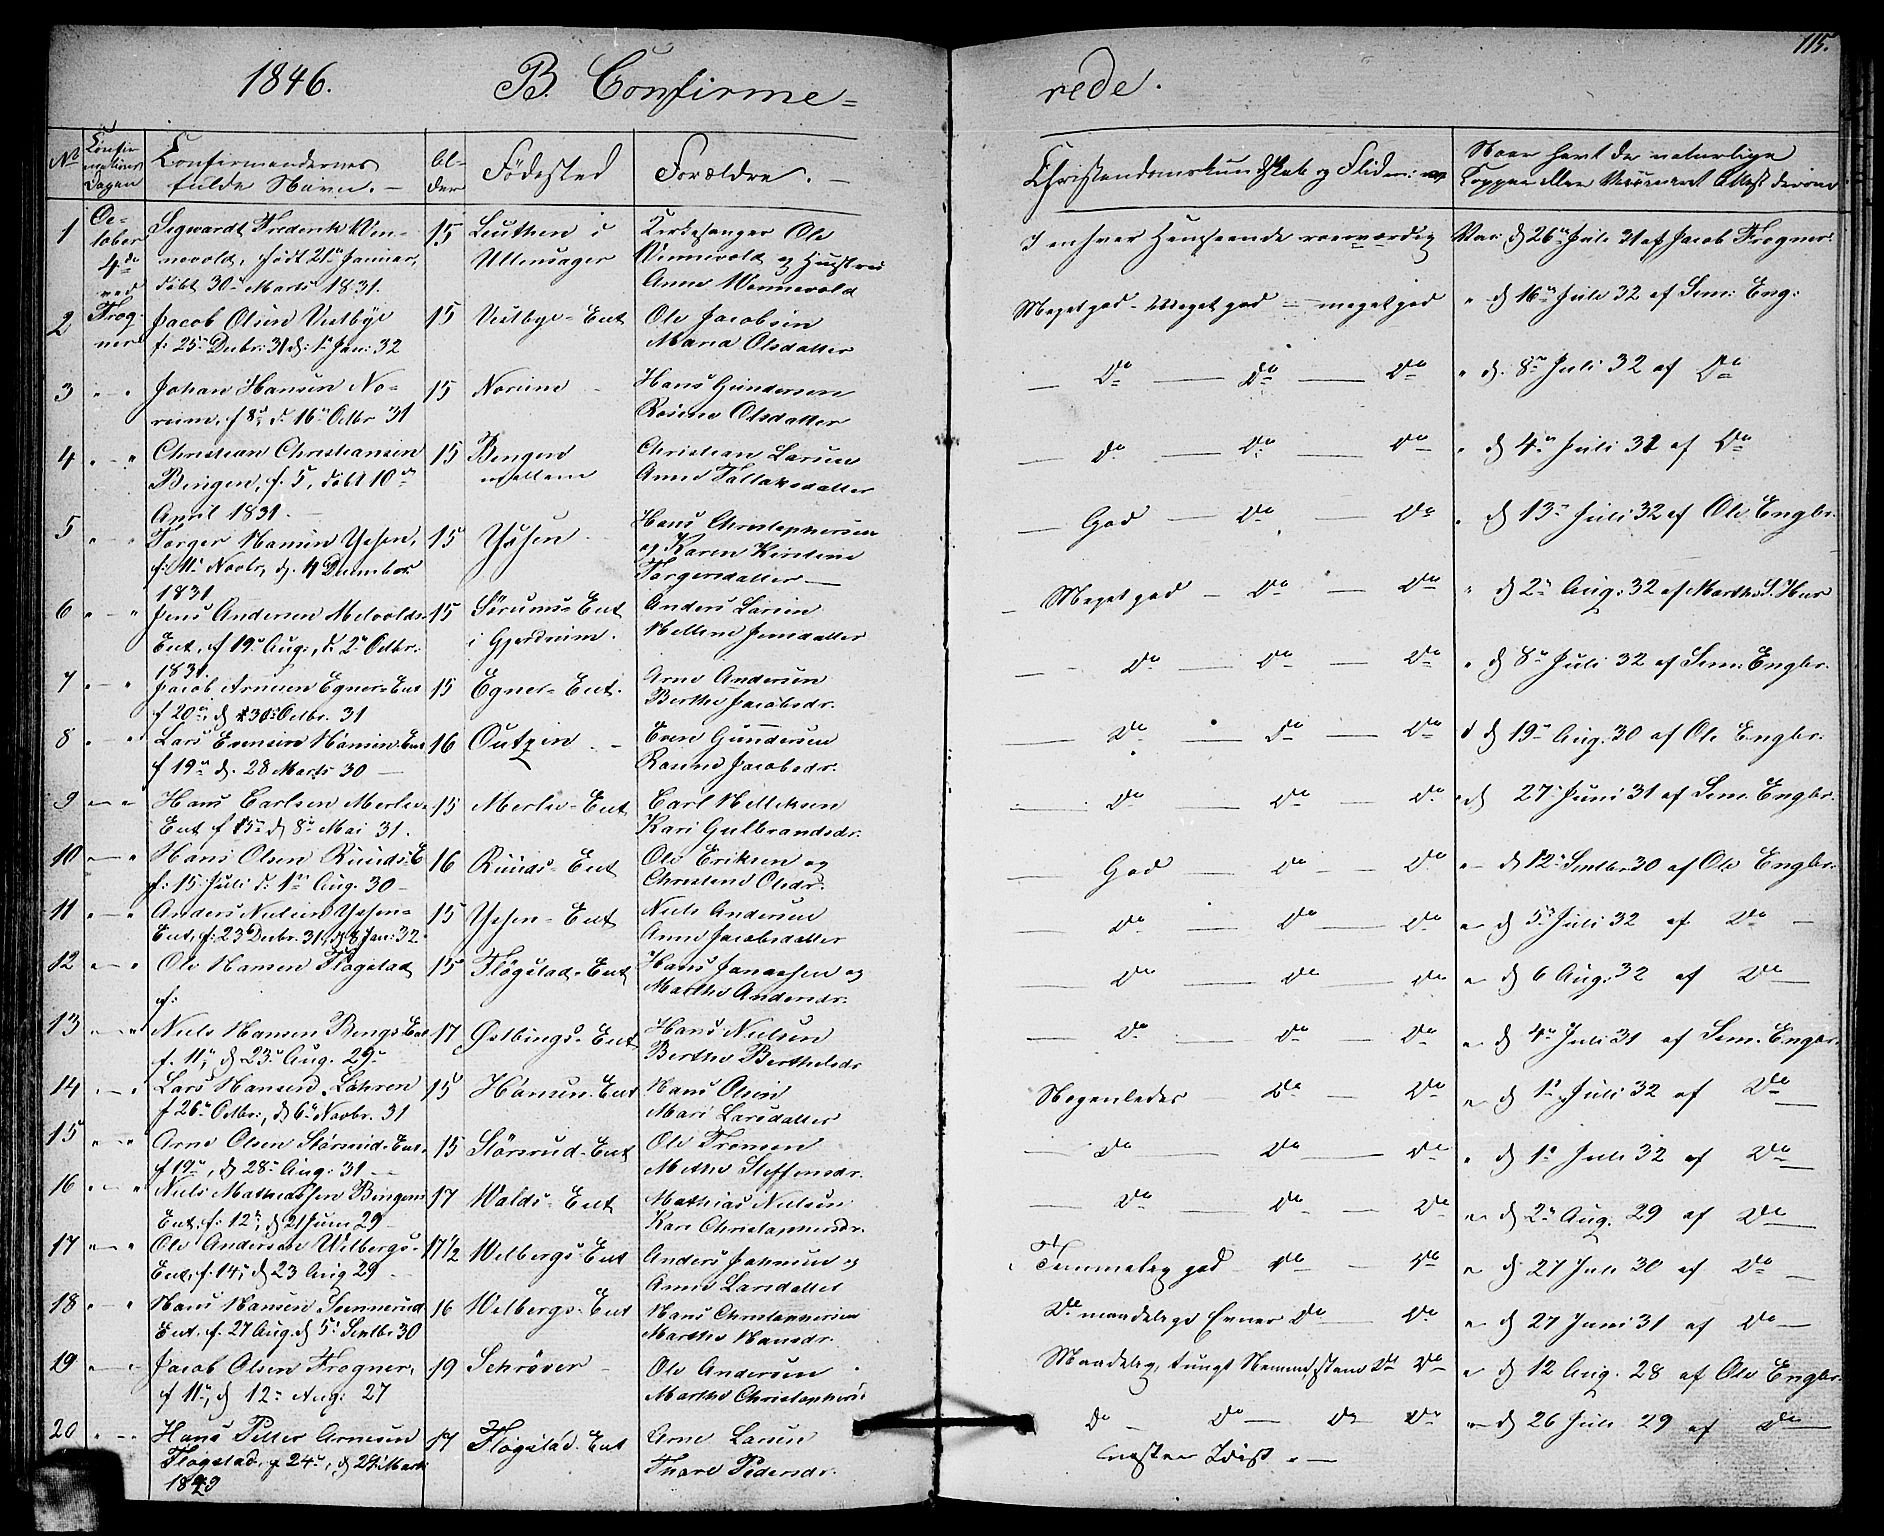 115.
1846. B. Confirme=
rede.
No Confirmations Dagen Confirmandernes fulde Navn. — Alder Fødested Forældre. — Christendomskundskab og Flid Naar havt de naturlige Kopper eller Vaccineret Attest derom
1 October 4de ved Frogner Sigwardt Frederik Wennevold, født 21de Januar, døbt 30te Marts 1831. 15 Leuthen i Ullensager Kirkesanger Ole Wennevold og Hustrue Anne Wennevold I enhver Henseende roesværdig Vac: d 26de Juli 31 af Jacob Frogner.
2 Jacob Olsen Vestbye f: 25de Decbr: 31 d: 1te Jan: 32 15 Vestbye-Ent Ole Jacobsen Maria Olsdatter Meget god - Meget god - meget god " d 16de Juli 32 af Sem: Eng:
3 " " Johan Hansen Noreim, f 8de d. 16de Octbr 31 15 Noreim Hans Gundersen Rosine Olsdatter — Do — Do — Do " d. 8de Juli 32 af Do
4 " " Christian Christiansen Bingen, f. 5, døbt 10de April 1831. 15 Bingen mellem Christian Larsen Anne Tollaksdatter — Do — Do — Do " d 4de Juli 31 af Do
5 " " Torger Hansen Yssen, f: 11te Novbr, d. 4 December 1831 15 Yssen Hans Christophersen og Karen Kirstine Torgersdatter — God — Do — Do " d 13de Juli 32 af Ole Engbr.
6 " " Jens Andersen Melvolds-Ent, f 19de Aug:, d. 2de Octbr. 1831. 15 Sørums-Ent i Gjerdrum. Anders Larsen Helline Jensdatter — Meget god — Do — Do " d 2de Aug: 32 af Marthe S. Hus
7 " " Jacob Arnesen Egner-Ent f 20de, d 30te Octbr. 31 15 Egner-Ent. Arne Andersen Berthe Jacobsdr. — Do — Do — Do " d 8de Juli 32 af Sem: Engbr.
8 " " Lars Evensen Hansen-Ent f 19de d. 28 Marts 30 16 Outzen Even Gundersen Rosine Jacobsdr. — Do — Do — Do d 19de Aug. 30 af Ole Engbr.
9 " " Hans Carlsen Merlie-Ent f 15de d 8de Mai 31. 15 Merlie-Ent Carl Kari Gulbrandsdr. — Do — Do — Do " d 27 Juni 31 af Sem. Engbr.
10 " " Hans Olsen Ruuds-E f: 15 Juli d. 1te Aug. 30 16 Ruuds-Ent Ole Eriksen og Christine Olsdr. — God — Do — Do " d 12te Septbr 30 af Ole Engbr.
11 " " Anders Nielsen Yssen-Ent, f: 23 Decbr. 31, d 8 Jan: 32 15 Yssen-Ent Niels Andersen Anne Jacobsdatter — Do — Do — Do " d 5te Juli 32 af Do —
12 " " Ole Hansen Flogstad f: 15 Fløgstad-Ent Hans Jonassen og Marthe Andersdr. — Do — Do — Do " d 6 Aug. 32 af Do —
13 " " Niels Hansen Bings-Ent f. 11te, d 23de Aug. 29. 17 Østbings-Ent Hans Nielsen Berthe Berthelsdr — Do — Do — Do " d 4de Juli 31 af Sem. Engbr.
14 " " Lars Hansen Lohren f 26de Octbr:, d 6te Novbr. 31 15 Hansen-Ent Hans Olsen Mari Larsdatter Nogenledes Do — Do " d 1te Juli 32 af Do —
15 " " Arne Olsen Størsrud-Ent. f 19de, d 28de Aug: 31 15 Størsrud-Ent Ole Tronsen Methe Steffensdr. — Do — Do — Do " d 1te Juli 32 af Do —
16 " " Niels Mathiassen Bingens Ent, f: 12te, d 21 Juni 29 17 Walds-Ent Mathias Nielsen Kari Christophersdr. — Do — Do — Do " d 2de Aug. 29 af Do
17 " " Ole Andersen Wilbergs-Ent, f. 14de, d 23 Aug 29 17 1/2 Wilbergs-Ent Anders Johnsen og Anne Larsdatter Temmelig god - Do — Do " d 27 Juli 30 af Do —
18 " " Hans Hansen Sunnerud Ent, f. 27 Aug. d 5te Septbr 30 16 Wilbergs-Ent Hans Christophersen Marthe Hansdr. Do maadelige Evner Do — Do " d 27 Juni 31 af Do —
19 " " Jacob Olsen Frogner, f 11te, d 12te Aug: 27 19 Schrøver Ole Andersen Marthe Christophersd Maadelig, tungt Nemme, Do Do " d 12 Aug. 28 af Ole Engbr.
20 " " Hans Petter Arnesen Flogstad, f 24de, d 29de Marts 1829 17 Fløgstad-Ent Arne Larsen Thore Pedersdr. Do — Do — Do Do næsten Idiot. — " d 26 Juli 29 af Do —